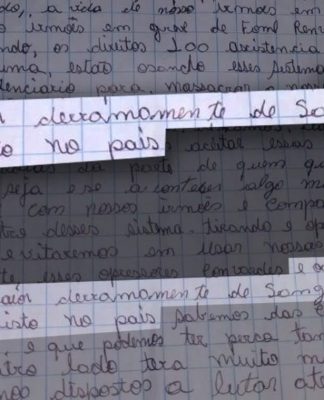 do, a vida de nosso irmões em
irmões em gral de Forml
ndo, os direitos 100 assistencia
uma, estão osando esses sistema
denciario para massacrar
derramamente de San
no país
aceitar essas
da parte de quem qu
seja e se acontecer algo m
com nossos irmões e compa
tro desses sistma. tirando e op
evitaremos em usar nossas
esses opressores
derramamente de Sang
isto no país sabemos das
e que podemos ter perca tam
tro lado tera muito m
mos dispostos a lutar até